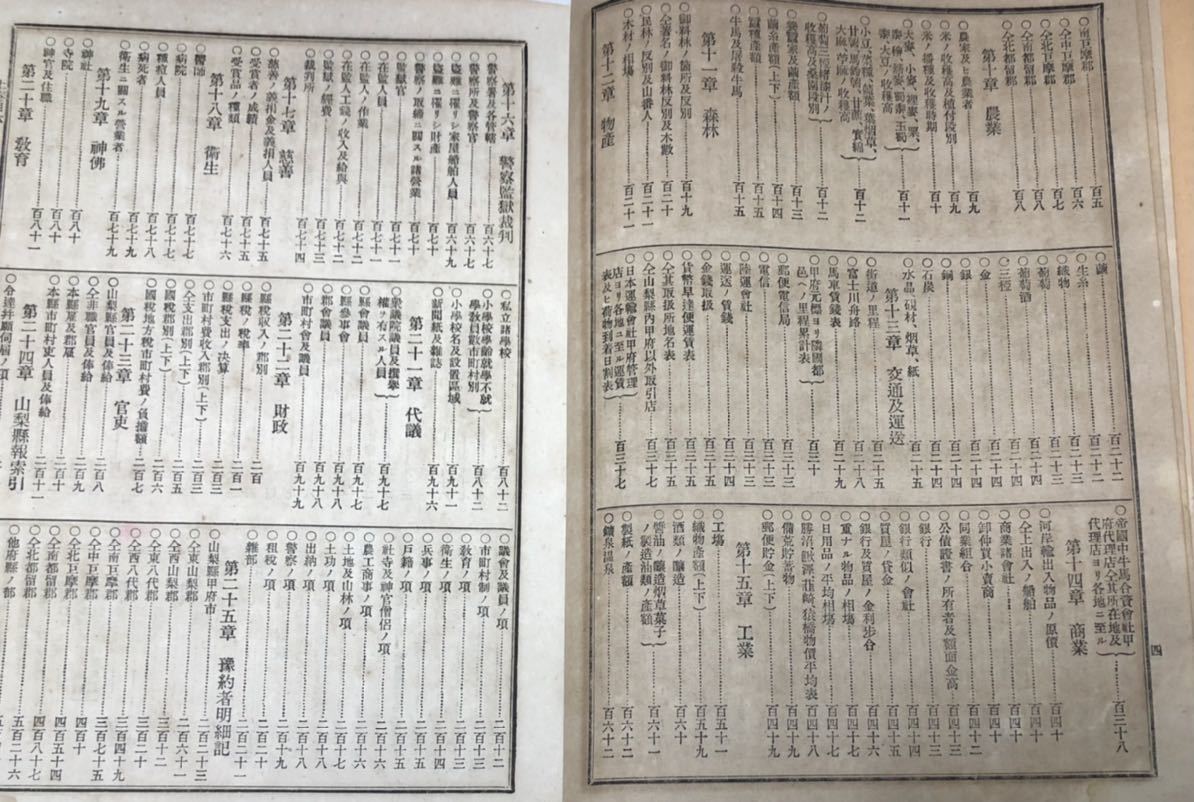 四
〇南巨摩郡……百五
〇仝中巨摩郡……百六
〇仝北巨摩郡……百七
〇仝南都留郡……百八
〇仝北都留郡……百八
第十章 農業
〇農家及ヒ農業者……百九
〇米ノ收穫高及植付段別……百九
〇米ノ播種及收穫時期……百十
〇大麥、小麥、裸麥、粟、黍、稗、蕎麥、蜀黍、玉蜀黍、大豆ノ收穫高……百十一
〇小豆、菜種、藍葉、葉烟草、甘藷、馬鈴薯、甘蔗、實綿、大麻、苧麻ノ收穫高……百十二
〇葡萄、三椏、楮、漆汁ノ收穫高及桑園段別……百十二
〇養蠶家及繭產額……百十三
〇繭糸產額(上下)……百十四
〇蠶種產額……百十五
〇牛馬及屠殺牛馬……百十五
第十一章 森林
〇御料林ノ箇所及反別……百十九
〇仝著名ノ御料林反別及木數……百二十
〇民林ノ反別及山番人……百二十一
〇木材ノ相場……百二十一
第十二章 物產
〇繭……百二十二
〇生糸……百二十二
〇織物……百二十二
〇葡萄……百二十三
〇葡萄酒……百二十三
〇三椏……百二十三
〇金……百二十四
〇銀……百二十四
〇銅……百二十四
〇石炭……百二十四
〇水晶、硯材、烟草、紙……百二十五
第十三章 交通及運送
〇街道ノ里程……百二十五
〇富士川舟路……百二十八
〇馬車賃錢表……百二十九
〇甲府元標ヨリ隣國都邑ヘノ里程累計表……百三十
〇郵便電信局……百三十二
〇電信……百三十三
〇陸運會社……百三十三
〇運送ノ賃錢……百三十四
〇金錢取扱……百三十四
〇貨幣早達便運賃表……百三十五
〇仝其取扱所地名表……百三十五
〇仝山梨縣內甲府以外取引店……百三十七
〇日本運輸會社甲府管理店ヨリ各地ニ至ル運賃表及ヒ荷物到着日割表……百三十七
〇帝國中牛馬合資會社甲府代理店仝其所在地及代理店ヨリ各地ニ至ル……百三十八
第十四章 商業
〇河岸輸出入物品ノ原價……百四十
〇仝上出入ノ船舶……百四十
〇商業諸會社……百四十
〇卸仲買小賣商……百四十
〇同業組合……百四十二
〇公債證書ノ所有者及額面金高……百四十
〇銀行……百四十
〇銀行類似ノ會社……百四十
〇質屋ノ貸金……百四十五
〇銀行及質屋ノ金利步合……百四十六
〇重ナル物品ノ相場……百四十七
〇日用品ノ平均相場……百四十八
〇勝沼鰍澤韮崎猿橋物價平均表……百四十八
〇備荒貯蓄物……百四十九
〇郵便貯金(上下)……百四十九
第十五章 工業
〇工場……百五十一
〇織物產額(上下)……百五十九
〇酒類ノ釀造……百六十
〇醬油ノ釀造烟草菓子ノ製造油類ノ產額……百六十一
〇製紙ノ產額……百六十二
〇鑛泉溫泉……百六十二
第十六章 警察監獄裁判
〇警察署及各管轄……百六十七
〇警察所及警察官……百六十七
〇盜難ニ罹リシ家屋船舶人員……百六十九
〇盜難ニ罹リシ財產……百七十
〇警察ノ取締ニ關スル諸營業……百七十
〇監獄官……百七十一
〇在監人員……百七十一
〇在監人ノ作業……百七十二
〇在監人工錢ノ收入及給與……百七十二
〇監獄ノ經費……百七十三
〇裁判所……百七十四
第十七章 慈善
〇慈善ノ義捐金及義捐人員……百七十五
〇受賞者ノ成績……百七十五
〇受賞品ノ種類……百七十六
第十八章 衞生
〇醫師……百七十七
〇病院……百七十七
〇種痘人員……百七十八
〇病死者……百七十九
〇衞生ニ關スル營業者……百七十九
第十九章 神佛
〇神社……百八十
〇寺院……百八十
〇神官及住職……百八十一
第二十章 敎育
〇私立諸學校……百八十二
〇小學校學齡就學不就學敎員數市町村別……百八十二
〇小學校名及設置區域……百九十一
〇新聞紙及雜誌……百九十六
第二十一章 代議
〇衆議院議員及撰擧權ヲ有スル人員……百九十七
〇縣會議員……百九十七
〇縣參事會……百九十八
〇郡會議員……百九十八
〇市町村會及議員……百九十九
第二十二章 財政
〇縣稅收入ノ郡別……二百
〇縣稅ノ稅率……二百一
〇縣稅支出ノ決算……二百三
〇市町村費收入郡別(上下)……二百三
〇仝支出郡別(上下)……二百五
〇國稅郡別(上下)……二百六
〇國稅地方稅市町村費ノ負擔額……二百七
第二十三章 官吏
〇山梨縣官員及俸給……二百八
〇仝非職官員及俸給……二百九
〇本縣雇及郡雇……二百十
〇本縣市町村吏人員及俸給……二百十一
第二十四章 山梨縣報索引
〇令達幷願伺屆ノ項
〇議會及議員ノ項……二百十二
〇市町村制ノ項……二百十二
〇敎育ノ項……二百十三
〇衞生ノ項……二百十四
〇兵事ノ項……二百十五
〇戶籍ノ項……二百十五
〇社寺及神官僧侶ノ項……二百十六
〇農工商事ノ項……二百十七
〇土地及山林ノ項……二百十七
〇土功ノ項……二百十八
〇出納ノ項……二百十八
〇警察ノ項……二百十九
〇租稅ノ項……二百二十
〇雜部……二百二十一
第二十五章 豫約者明細記
〇山梨縣甲府市……二百二十三
〇仝東山梨郡……二百六十一
〇仝西山梨郡……三百十二
〇仝東八代郡……三百二十
〇仝西八代郡……三百四十九
〇仝南巨摩郡……三百七十五
〇仝中巨摩郡……四百十
〇仝北巨摩郡……四百五十四
〇仝南都留郡……四百八十七
〇仝北都留郡……五百十六
〇他府縣ノ部